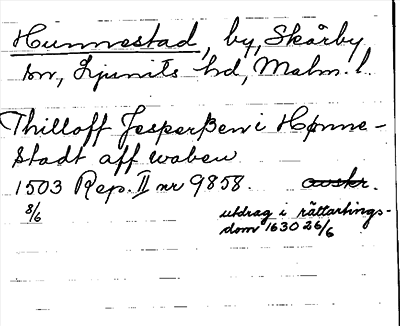 Hunnestad, by, Skårby
sn, Ljunits hd, Malm. l.
Thilloff Jesperßen i Hønne-
stadt aff waben
1503 Rep. II nr 9858. avskr.
8/6
utdrag i rättartings-
dom 1630 26/6